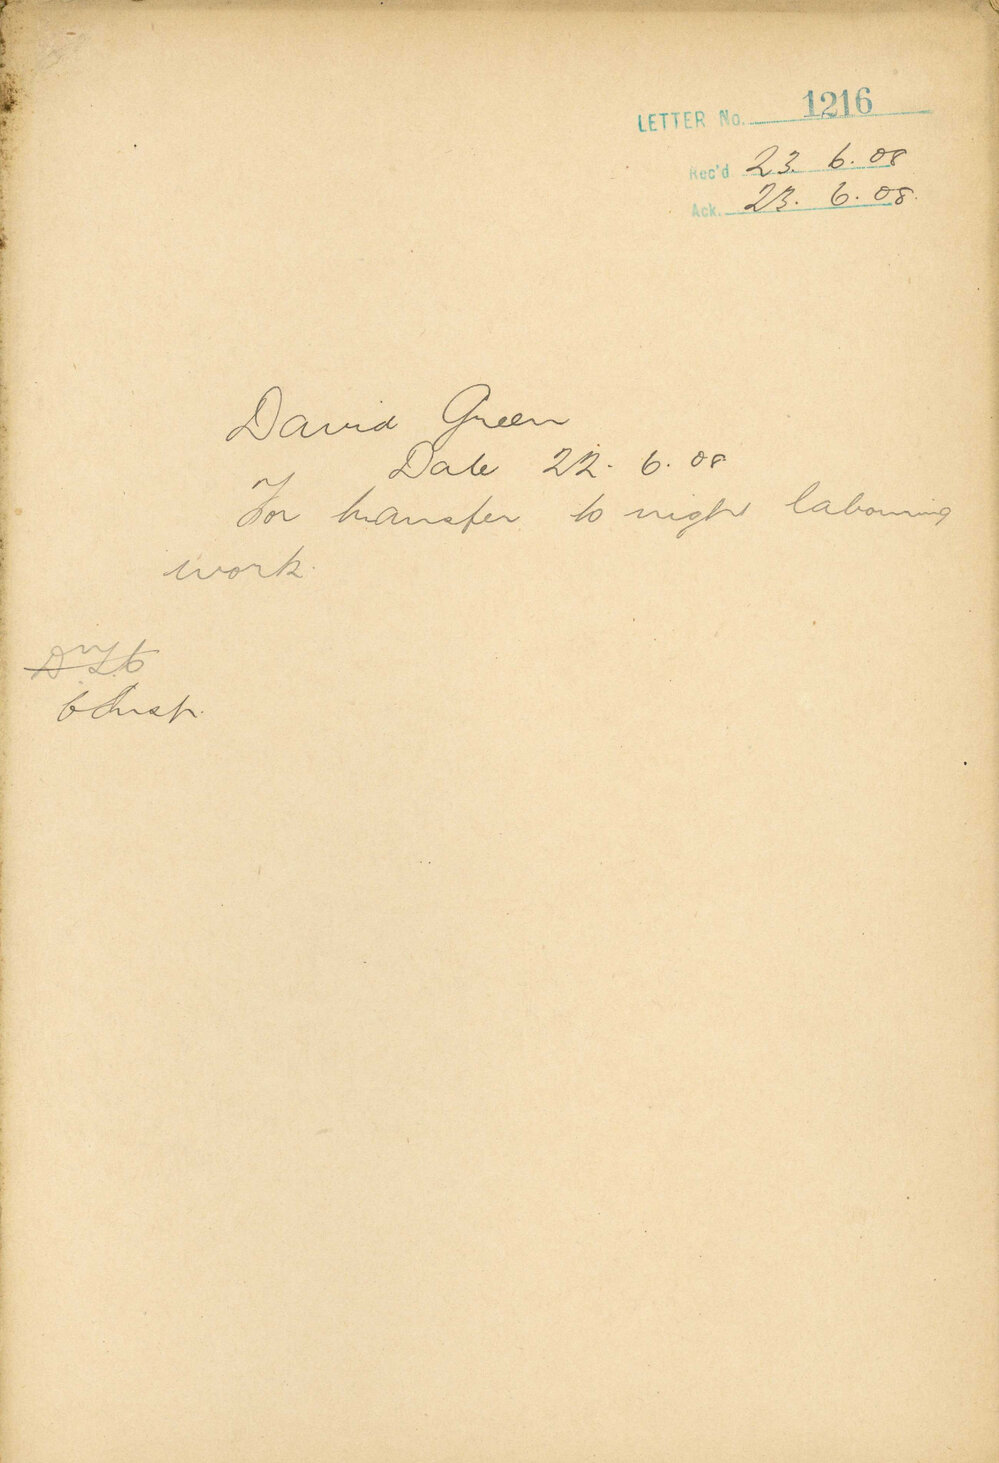 LETTER No. 1216
Rec'd 23. 6. 08
Ack. 23. 6. 08.
David Green
Date 22. 6. 08
For transfer to night labouring
work.
C Insp.